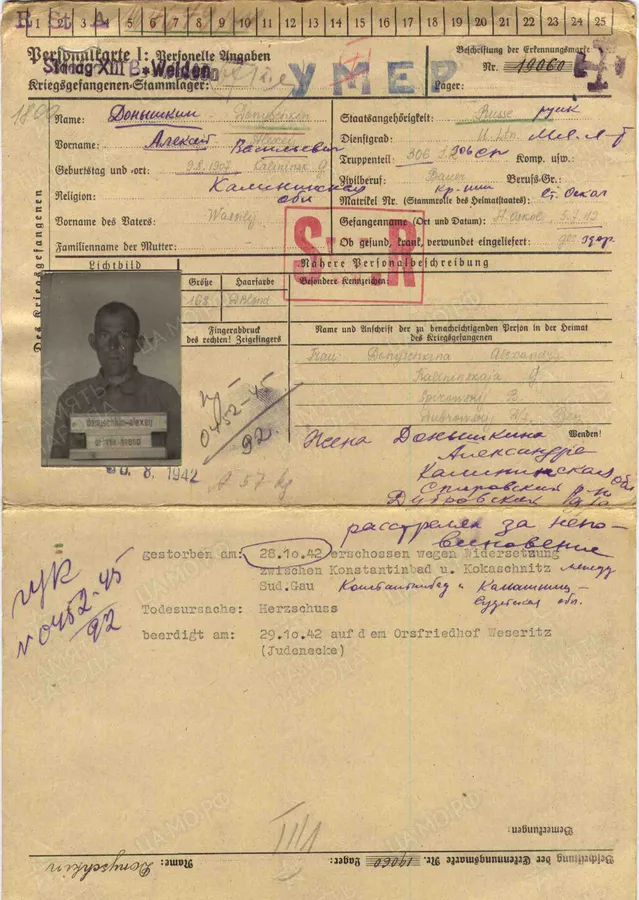 E St A
1 2 3 4 5 6 7 8 9 10 11 12 13 14 15 16 17 18 19 20 21 22 23 24 25
Personalkarte I: Personelle Angaben
Beschriftung der Erkennungsmarke
Stalag XIII B * Weiden
УМЕР
Nr. 19060
Kriegsgefangenen-Stammlager:
Lager:
Des Kriegsgefangenen
Name: Донышкин Donyschkin
Staatsangehörigkeit: Russe русск
Vorname: Алексей Alexej Васильевич
Dienstgrad: U. Ltn. Мл. Л-т
Truppenteil: 306 306 сп Komp. usw.:
Geburtstag und -ort: 9.8.1907 Kalininsk G
Zivilberuf: Bauer Berufs-Gr.:
Калининская обл
кр-нин
Religion:
Matrikel Nr. (Stammrolle des Heimatstaates): Ст. Оскол
Vorname des Vaters: Wassilij
Gefangennahme (Ort und Datum): 3.7.42
Familienname der Mutter:
Ob gesund, krank, verwundet eingeliefert: ges здор.
Lichtbild
Nähere Personalbeschreibung
Größe Haarfarbe Besondere Kennzeichen:
168 D'blond
Fingerabdruck des rechten! Zeigefingers
Name und Anschrift der zu benachrichtigenden Person in der Heimat des Kriegsgefangenen
Frau Donyschkina Alexandra
Kalininskaja G
donyschkin-alexey
0452-45
92.
Wenden!
8. 1942
57 kg
Жена Донышкина
Александра
Калининская обл
Спировский р-н
Дубровская
расстрелян за непо-
виновение
gestorben am: 28.1o.42 erschossen wegen Widersetzung
zwischen Konstantinbad u. Kokaschnitz между
Sud.Gau Константинбад и Какашниц-
Судетская обл.
Todesursache: Herzschuss
beerdigt am: 29.1o.42 auf dem Orsfriedhof Weseritz
(Judenecke)
N 0452-45
92
III/1
Bemerkungen:
Name: Donyschkin
Beschriftung der Erkennungsmarke Nr. 19060 Lager:
ПАМЯТЬ НАРОДА
ЦАМО.РФ